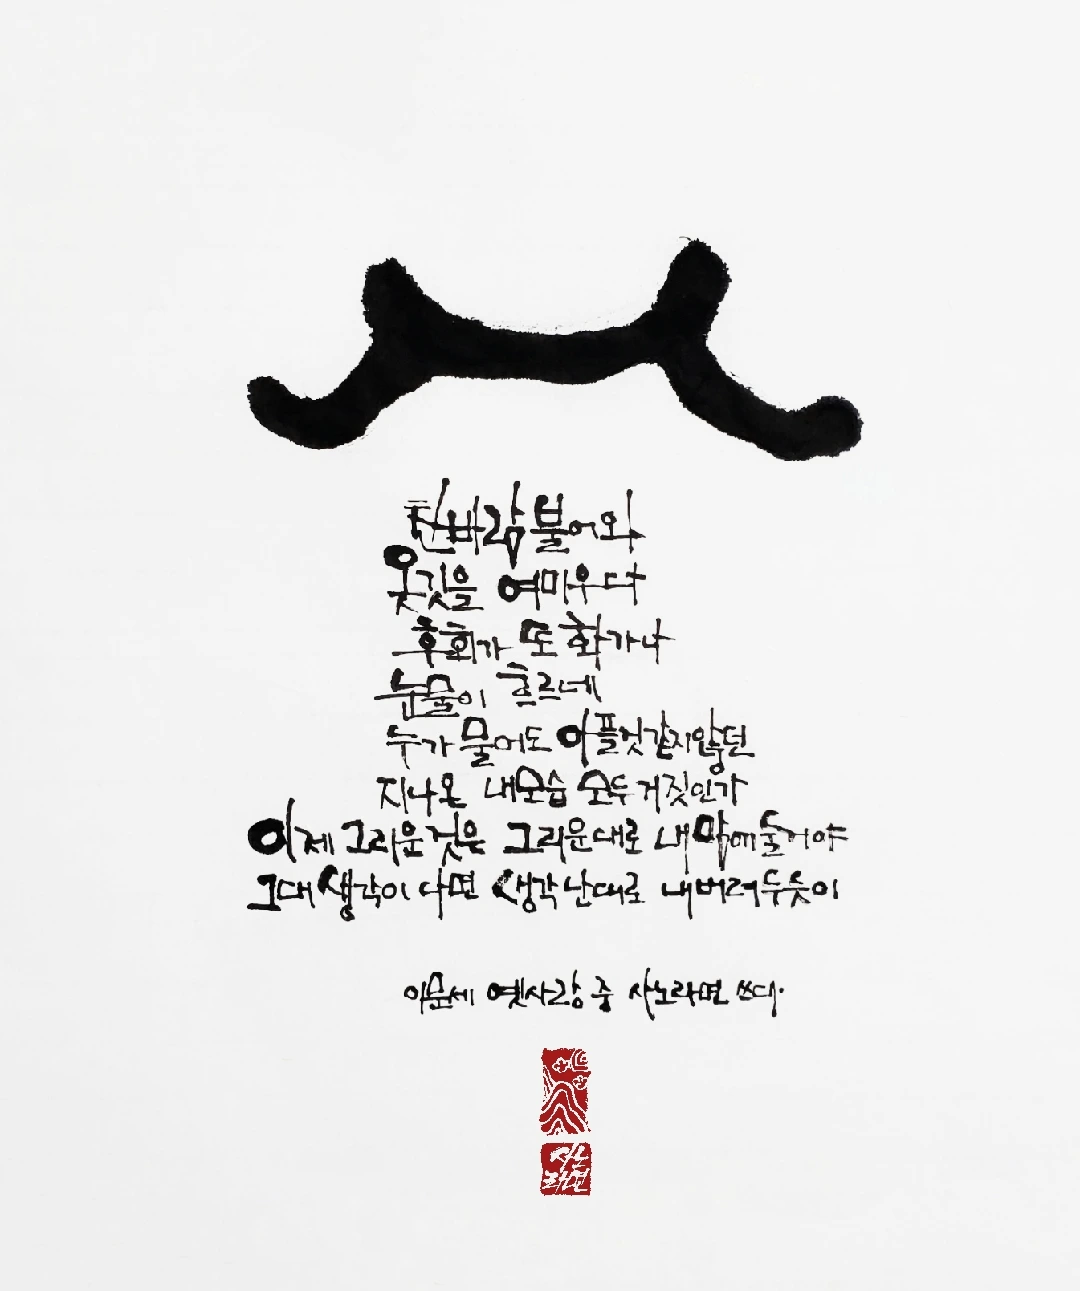 찬바람 불어와
옷깃을 여미우다
후회가 또 화가나
눈물이 흐르네
누가 물어도 아플것같지않던
지나온 내모습 모두 거짓인가
이제 그리운것은 그리운대로 내맘에둘거야
그대 생각이 나면 생각난대로 내버려두듯이
이문세 옛사랑 중 사노라면 쓰다.
사노
라면